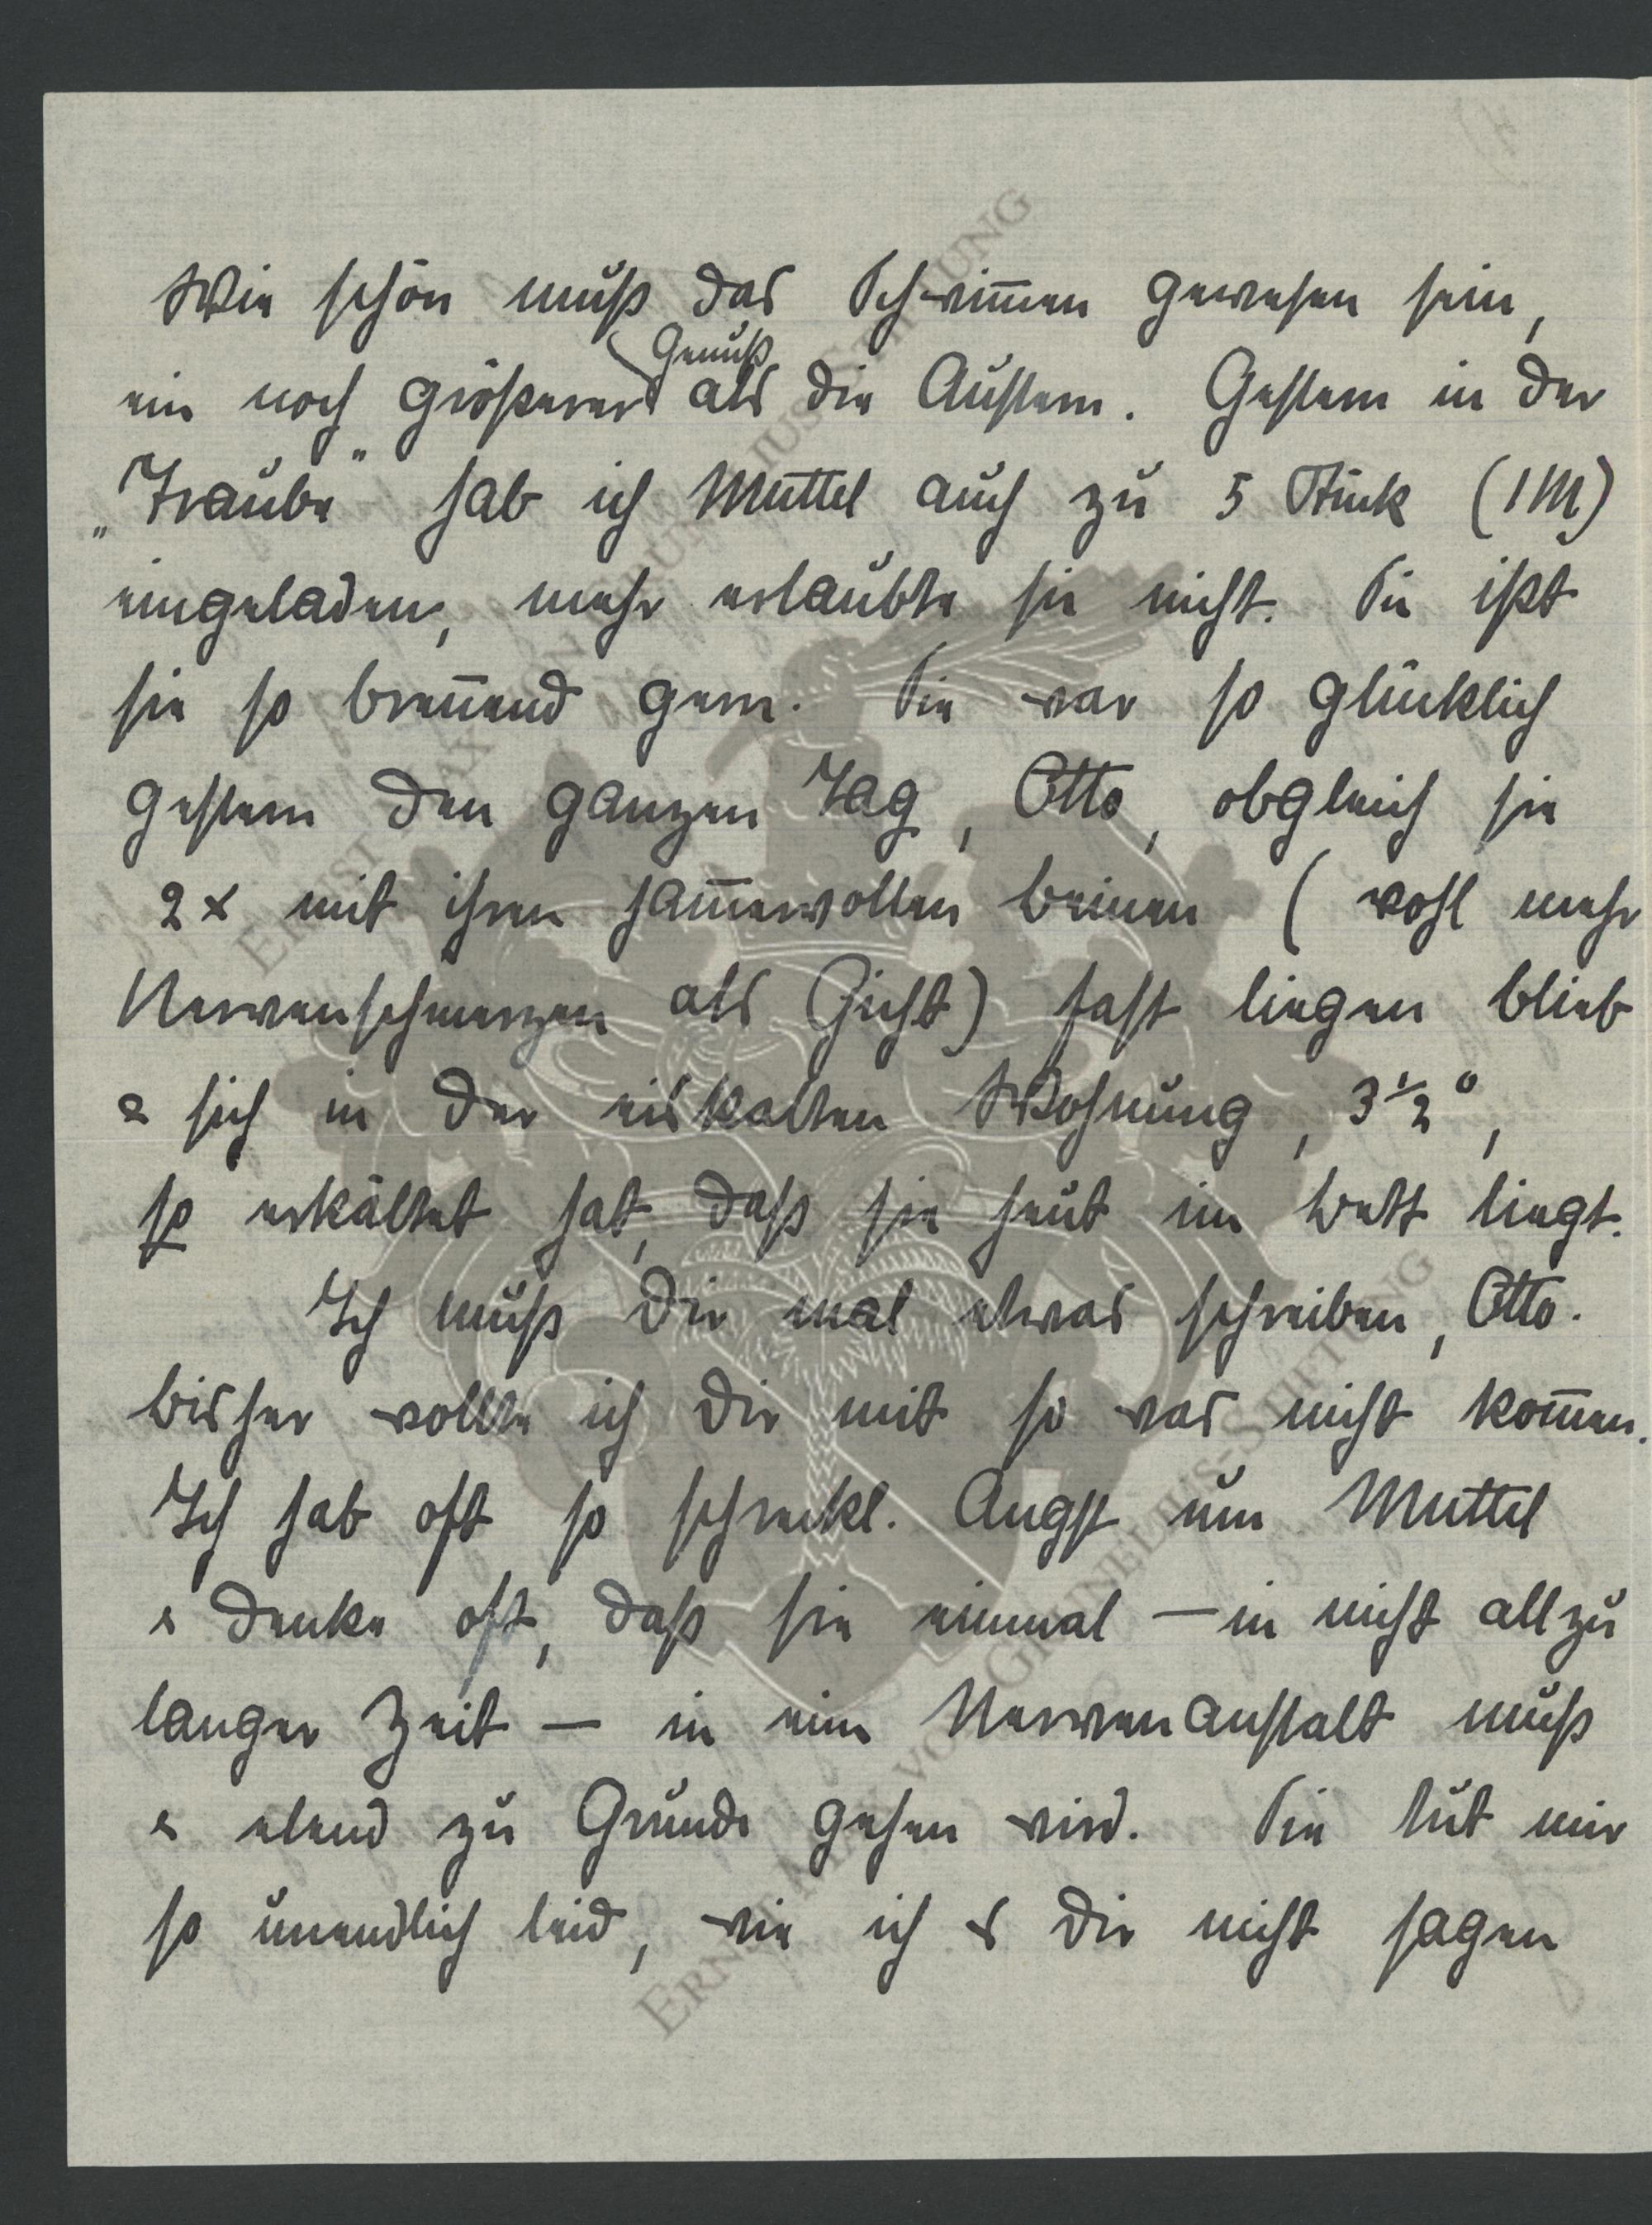 Wie schön muß das Schwim̅en gewesen sein,
ein noch größerer Genuß als die Austern. Gestern in der
„Traube" hab ich Muttel auch zu 5 Stück (1M)
eingeladen, mehr erlaubte sie nicht. Sie ißt
sie so bren̅end gern. Sie war so glücklich
gestern den ganzen Tag, Otto, obgleich sie
2 x mit ihren jam̅ervollen Beinen (wohl mehr
Nervenschmerzen als Gicht) fast liegen blieb
& sich in der eiskalten Wohnung, 3½°,
so erkältet hat, daß sie heut im Bett liegt.
Ich muß Dir mal etwas schreiben, Otto.
Bisher wollte ich Dir mit so was nicht kom̅en.
Ich hab oft so schreckl. Angst um Muttel
& denke oft, daß sie einmal — in nicht allzu
langer Zeit — in eine Nervenanstalt muß
& elend zu Grunde gehen wird. Sie tut mir
so unendlich leid, wie ich es Dir nicht sagen
ERNST MAX VON GRUNELIUS-STIFTUNG
ERNST MAX VON GRUNELIUS-STIFTUNG